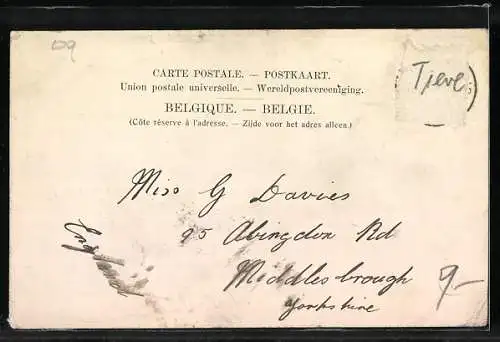 09
CARTE POSTALE. — POSTKAART.
Union postale universelle. — Wereldpostvereeniging.
BELGIQUE. — BELGIE.
(Côte réservé à l'adresse. — Zijde voor het adres alleen.)
Miss G Davies
95 Abingdon Rd
Middlesbrough
Yorkshire
England
9-